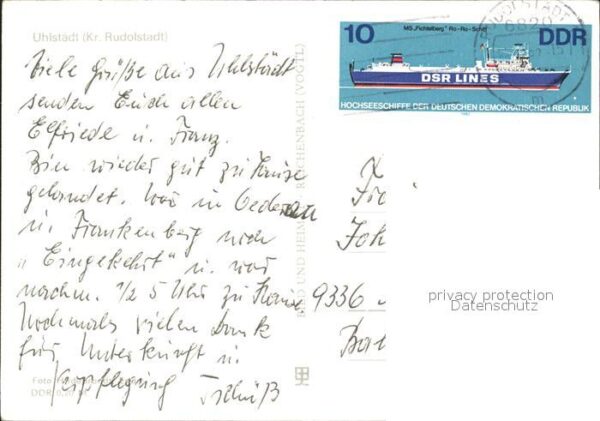 Uhlstädt (Kr. Rudolstadt)
Viele Grüße aus Uhlstädt
senden Euch allen
Elfriede u. Franz.
Bin wieder gut zu Hause
gelandet. War in Oederan
u. in Frankenberg noch
"Eingekehrt" u. war
nachm. 1/2 5 Uhr zu Hause
Nochmals vielen Dank
für Unterkunft u
Verpflegung Tschüß
Foto
DDR
BILD UND HEIMAT REICHENBACH (VOGTL)
RUDOLSTADT
6820
10 MS „Fichtelberg" Ro-Ro-Schiff DDR
DSR LINES
HOCHSEESCHIFFE DER DEUTSCHEN DEMOKRATISCHEN REPUBLIK
9336
privacy protection
Datenschutz